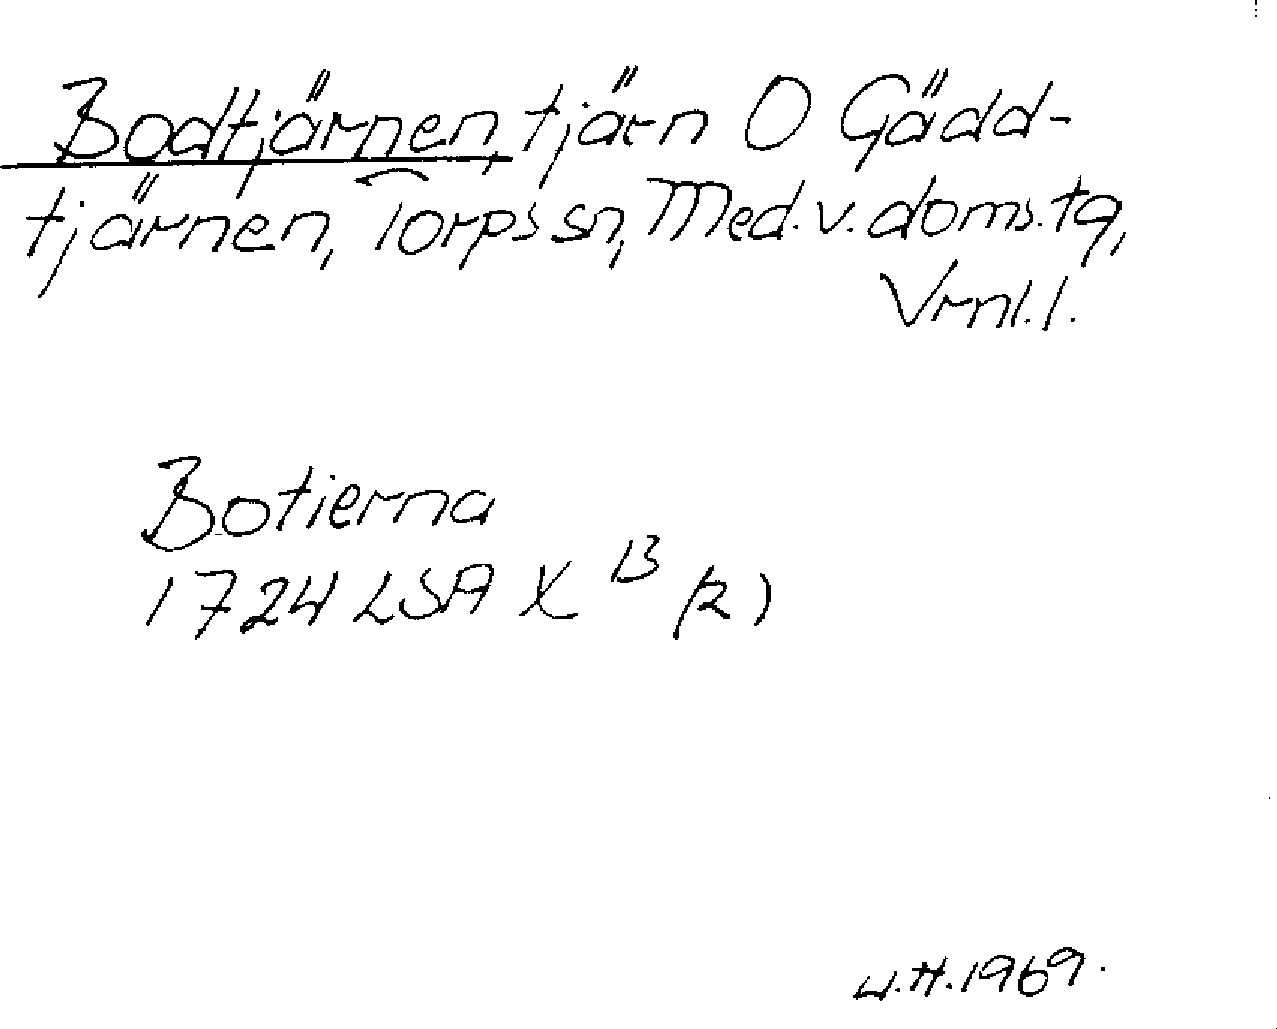 Bodtjärnen, tjärn O Gädd-
tjärnen, Torps sn, Med. v. doms. tg,
Vrnl. l.
Botierna
1724 LSA X 13 (2)
W.H. 1969.